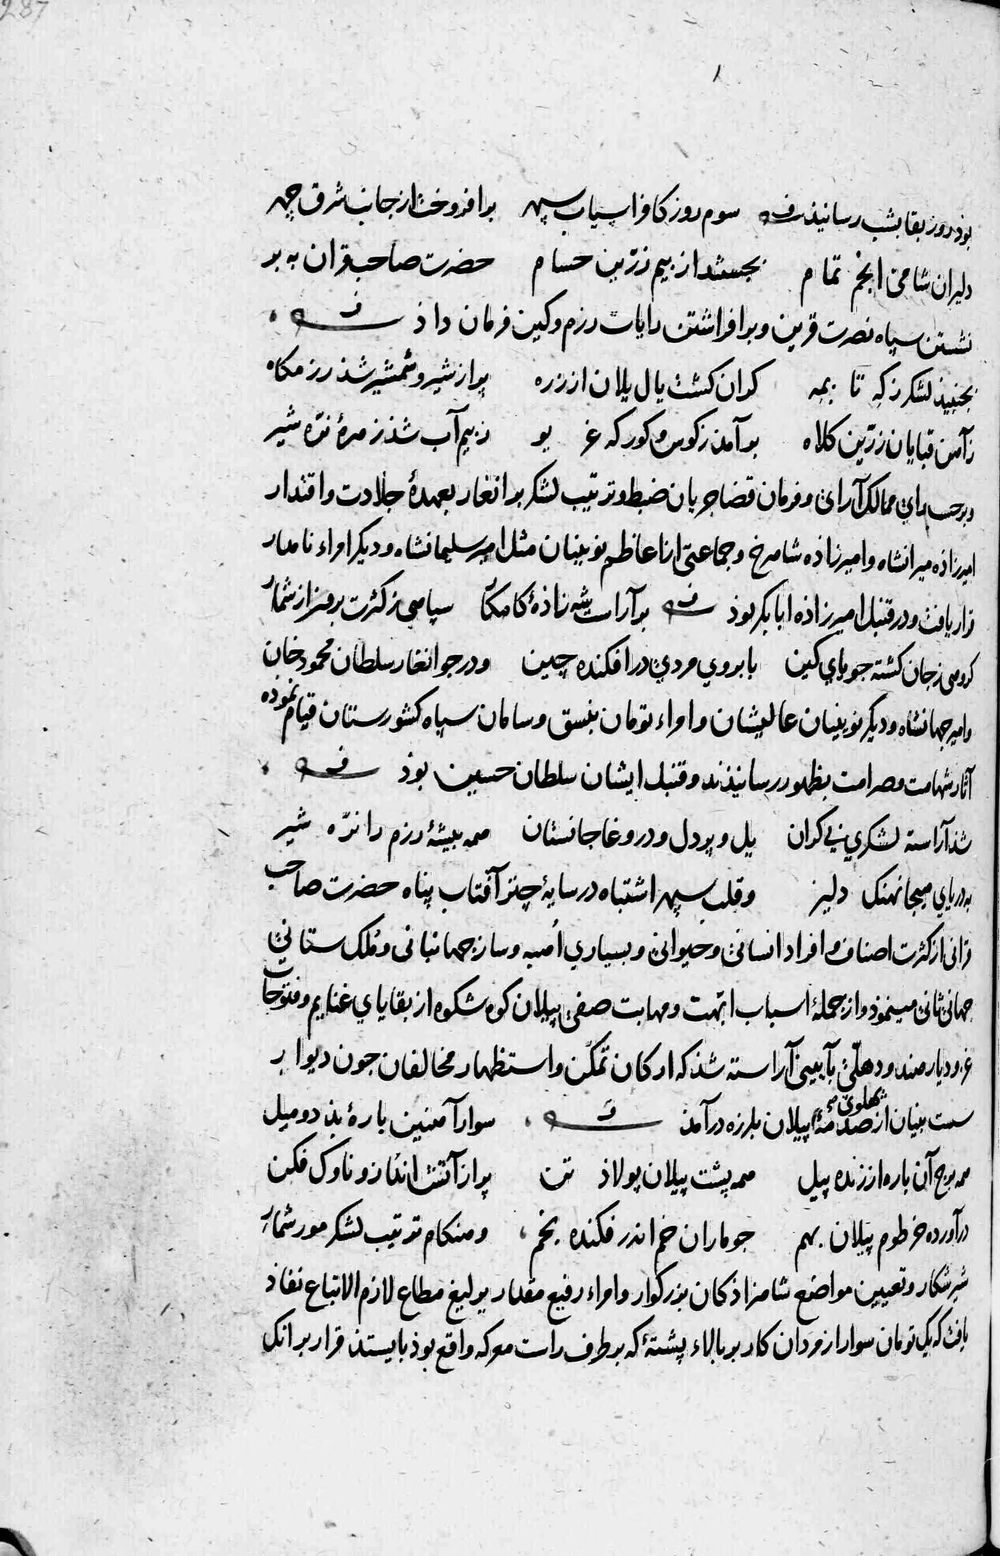 287
بوذ روز بقا بشب رسانیذند سوم روز کافراسیاب سپهر برافروخت از جانب شرق چهر
دلیران شامی انجم تمام بجستند از بیم زرّین حسام حضرت صاحب قران به بر
نشستن سپاه نصرت قرین و برافراشتن رایات رزم و کین فرمان داذ
بجنبید لشکر زکه تا بمه کران کشت یال یلان از زره پر از شیر و شمشیر شذ رزمکاه
زآهن قبایان زرّین کلاه برآمذ زکوس و کورکه غریو زبیم آب شذ زهرهٔ نرّه شیر
و برحسب رای ممالک آرای و فرمان قضا جریان ضبط و ترتیب لشکر برانغار بعهدهٔ جلادت و اقتدار
امیرزاذه میرانشاه و امیرزاذه شاهرخ و جماعتی از اعاظم نوینیان مثل امیر سلیمانشاه و دیکر امراء نامدار
قرار یافت و در قنبل امیرزاذه ابابکر بوذ برآراست شه زاذهٔ کامکار سپاهی زکثرت برون از شمار
کروهی زجان کشته جویای کین بابروی مردی درافکنده چین و در جوانغار سلطان محمود خان
و امیر جهانشاه و دیکر نوینیان عالیشان و امراء تومان بنسق و سامان سپاه کشورستان قیام نموده
آثار شهامت و صرامت بظهور رسانیذند و قنبل ایشان سلطان حسین بوذ
شذ آراسته لشکری بی کران یل و پردل و در وغا جانستان همه بیشهٔ رزم را نرّه شیر
به دریای هیجا نهنک دلیر و قلب سپهر اشتباه در سایهٔ چتر آفتاب پناه حضرت صاحب
قرانی از کثرت اصناف و افراد انسانی و حیوانی و بسیاری اُهبه و ساز جهانبانی و مُلک ستانی
جهانی ثانی مینموذ و از جملهٔ اسباب ابّهت و مهابت صفی پیلان کوه شکوه از بقایای غنایم و فتوحات
غزو دیار هند و دهلی بآیینی آراسته شذ که ارکان تمکّن و استظهار مخالفان جون دیوار
سست بنیان از صدمهٔ پهلوی پیلان بلرزه درآمذ سوار آهنین بارهٔ بذ دو میل
همه برج آن باره از زنده پیل همه پشت پیلان پولاذ تن پر از آتش انداز و ناوک فکن
درآورده خرطوم پیلان بهم جو ماران خم اندر فکنده بخم و هنکام ترتیب لشکر مور شمار
شیر شکار و تعیین مواضع شاهزاذکان بزرکوار و امراء رفیع مقدار یرلیغ مطاع لازم الاتباع نفاذ
یافت که یک تومان سوار از مردان کار بر بالاء پشتهٔ که بر طرف راست معرکه واقع بوذ بایستند قرار بر انک